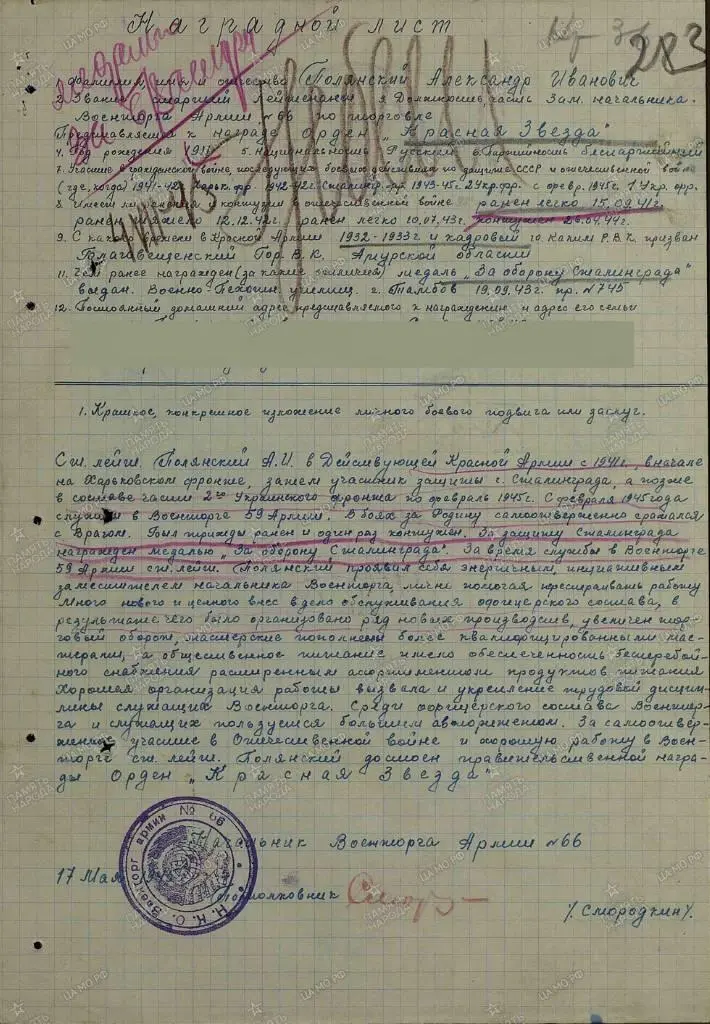 Наградной лист
283
1. Фамилия, имя и отчество Полянский Александр Иванович
2. Звание старший лейтенант 3 Должность, часть Зам. начальника
Военторга Армии №66 по торговле
Представляется к награде Орден „Красная Звезда"
4. Год рождения 5. Национальность Русский 6. Партийность беспартийный
7. Участие в гражданской войне, последующих боевых действиях по защите СССР и отечественной войне
(где, когда) 1941-42г. Харьк. фр. 1942-42г. Сталингр. фр. 1943-45г. 2 Укр. фр. с февр. 1945г. 1 Укр. фр.
8. Имеет ли ранения и контузии в отечественной войне ранен легко 15.09.41г.
ранен тяжело 12.12.42г. ранен легко 10.07.43г. контужен 26.04.44г.
9. С какого времени в Красной Армии 1932-1933г. и кадровый 10. Каким Р.В.К. призван
Благовещенский Гор. В. К. Амурской области
11. Чем ранее награжден (за какие отличия) медаль „За оборону Сталинграда"
выдан. Военно-Пехотн. училищ. г. Тамбов 19.09.43г. пр. №745
12. Постоянный домашний адрес представляемого к награждению и адрес его семьи
1. Краткое, конкретное изложение личного боевого подвига или заслуг.
Ст. лейт. Полянский А.И. в Действующей Красной Армии с 1941г., вначале
на Харьковском фронте, затем участник защиты г. Сталинграда, а позже
в составе части 2го Украинского фронта по февраль 1945г. С февраля 1945 года
служит в Военторге 59 Армии. В боях за Родину самоотверженно сражался
с Врагом. Был трижды ранен и один раз контужен. За защиту Сталинграда
награжден медалью „За оборону Сталинграда". За время службы в Военторге
59 Армии ст. лейт. Полянский проявил себя энергичным, инициативным
заместителем начальника Военторга, лично помогая перестраивать работу
Много нового и ценного внес в дело обслуживания офицерского состава, в
результате чего было организовано ряд новых производств, увеличен тор-
говый оборот, мастерские пополнены более квалифицированными мас-
терами, а общественное питание имело обеспеченность бесперебой-
ного снабжения расширенным ассортиментом продуктов питания
Хорошая организация работы вызвала и укрепление трудовой дисцип-
лины служащих Военторга. Среди офицерского состава Военторга
и служащих пользуется большим авторитетом. За самоотвер-
женное участие в Отечественной войне и хорошую работу в Воен-
торге ст. лейт. Полянский достоин правительственной награ-
ды Орден „Красная Звезда"
Начальник Военторга Армии №66
17 Мая
Подполковник
/Смородкин/.
Н.К.О. Военторг армии № 66
ПАМЯТЬ НАРОДА
ЦАМО.РФ